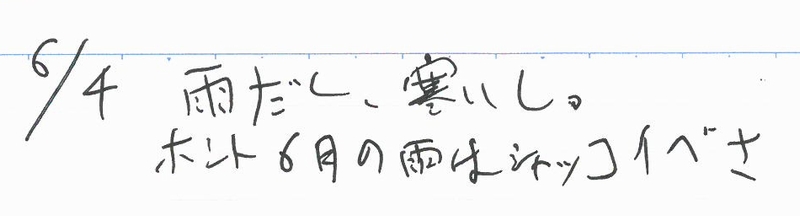 6/4 雨だし、寒いし。
ホント6月の雨はシャッコイべさ